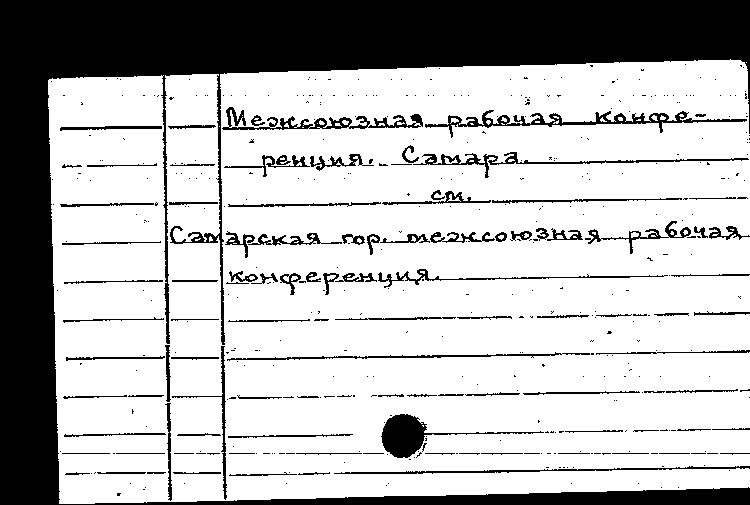 Межсоюзная рабочая конфе-
ренция. Самара.
см.
Самарская гор. межсоюзная рабочая
конференция.